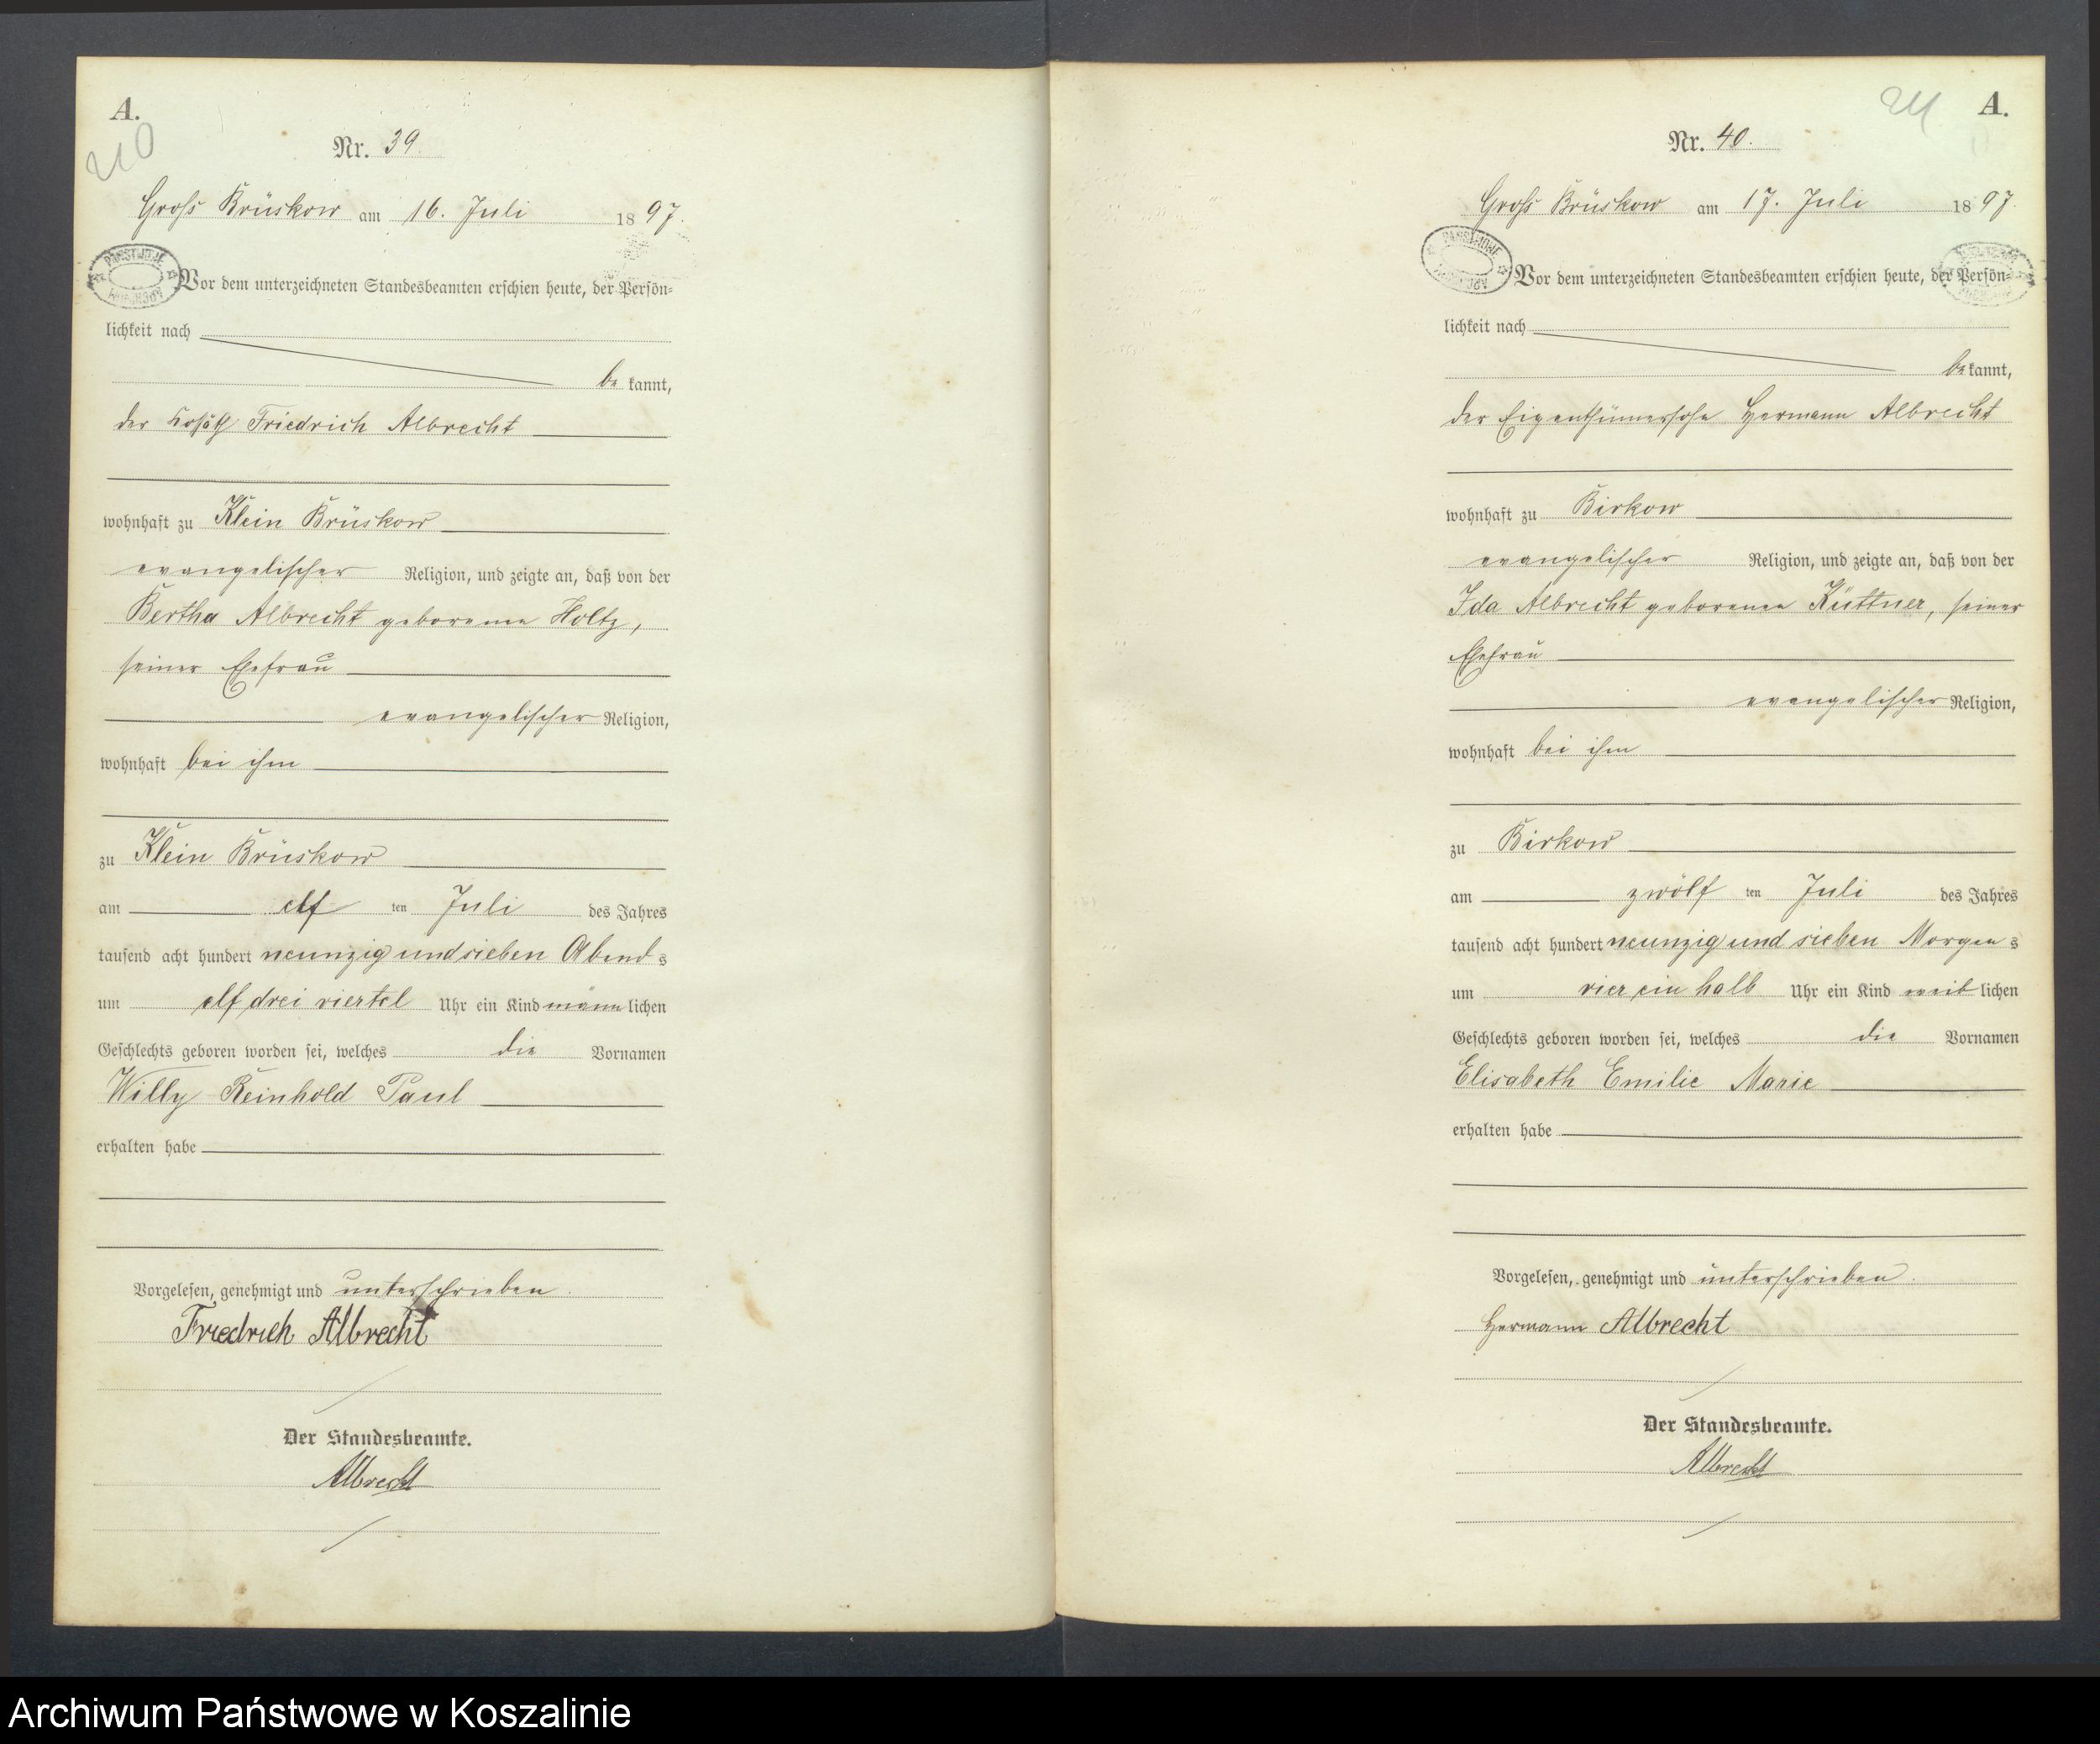 A.
210
Nr. 39
Gross Brüskow am 16. Juli 1897.
Vor dem unterzeichneten Standesbeamten erschien heute, der Persön-
lichkeit nach
be kannt,
der Kossäth Friedrich Albrecht
wohnhaft zu Klein Brüskow
evangelischer Religion, und zeigte an, daß von der
Bertha Albrecht geborenen Holtz,
seiner Ehefrau
evangelischer Religion,
wohnhaft bei ihm
zu Klein Brüskow
am elf ten Juli des Jahres
tausend acht hundert neunzig und sieben Abend s
um elf drei viertel Uhr ein Kind männ lichen
Geschlechts geboren worden sei, welches die Vornamen
Willy Reinhold Paul
erhalten habe
Vorgelesen, genehmigt und unterschrieben.
Friedrich Albrecht
Der Standesbeamte.
Albrecht
A.
Nr. 40.
Gross Brüskow am 17. Juli 1897
PAŃSTWOWE
Vor dem unterzeichneten Standesbeamten erschien heute, der Persön-
lichkeit nach
be kannt,
der Eigenthümersohn Hermann Albrecht
wohnhaft zu Birkow
evangelischer Religion, und zeigte an, daß von der
Ida Albrecht geborenen Küttner, seiner
Ehefrau
evangelischer Religion,
wohnhaft bei ihm
zu Birkow
am zwölf ten Juli des Jahres
tausend acht hundert neunzig und sieben Morgen s
um vier ein halb Uhr ein Kind weib lichen
Geschlechts geboren worden sei, welches die Vornamen
Elisabeth Emilie Marie
erhalten habe
Vorgelesen, genehmigt und unterschrieben.
Hermann Albrecht
Der Standesbeamte.
Albrecht
Archiwum Państwowe w Koszalinie